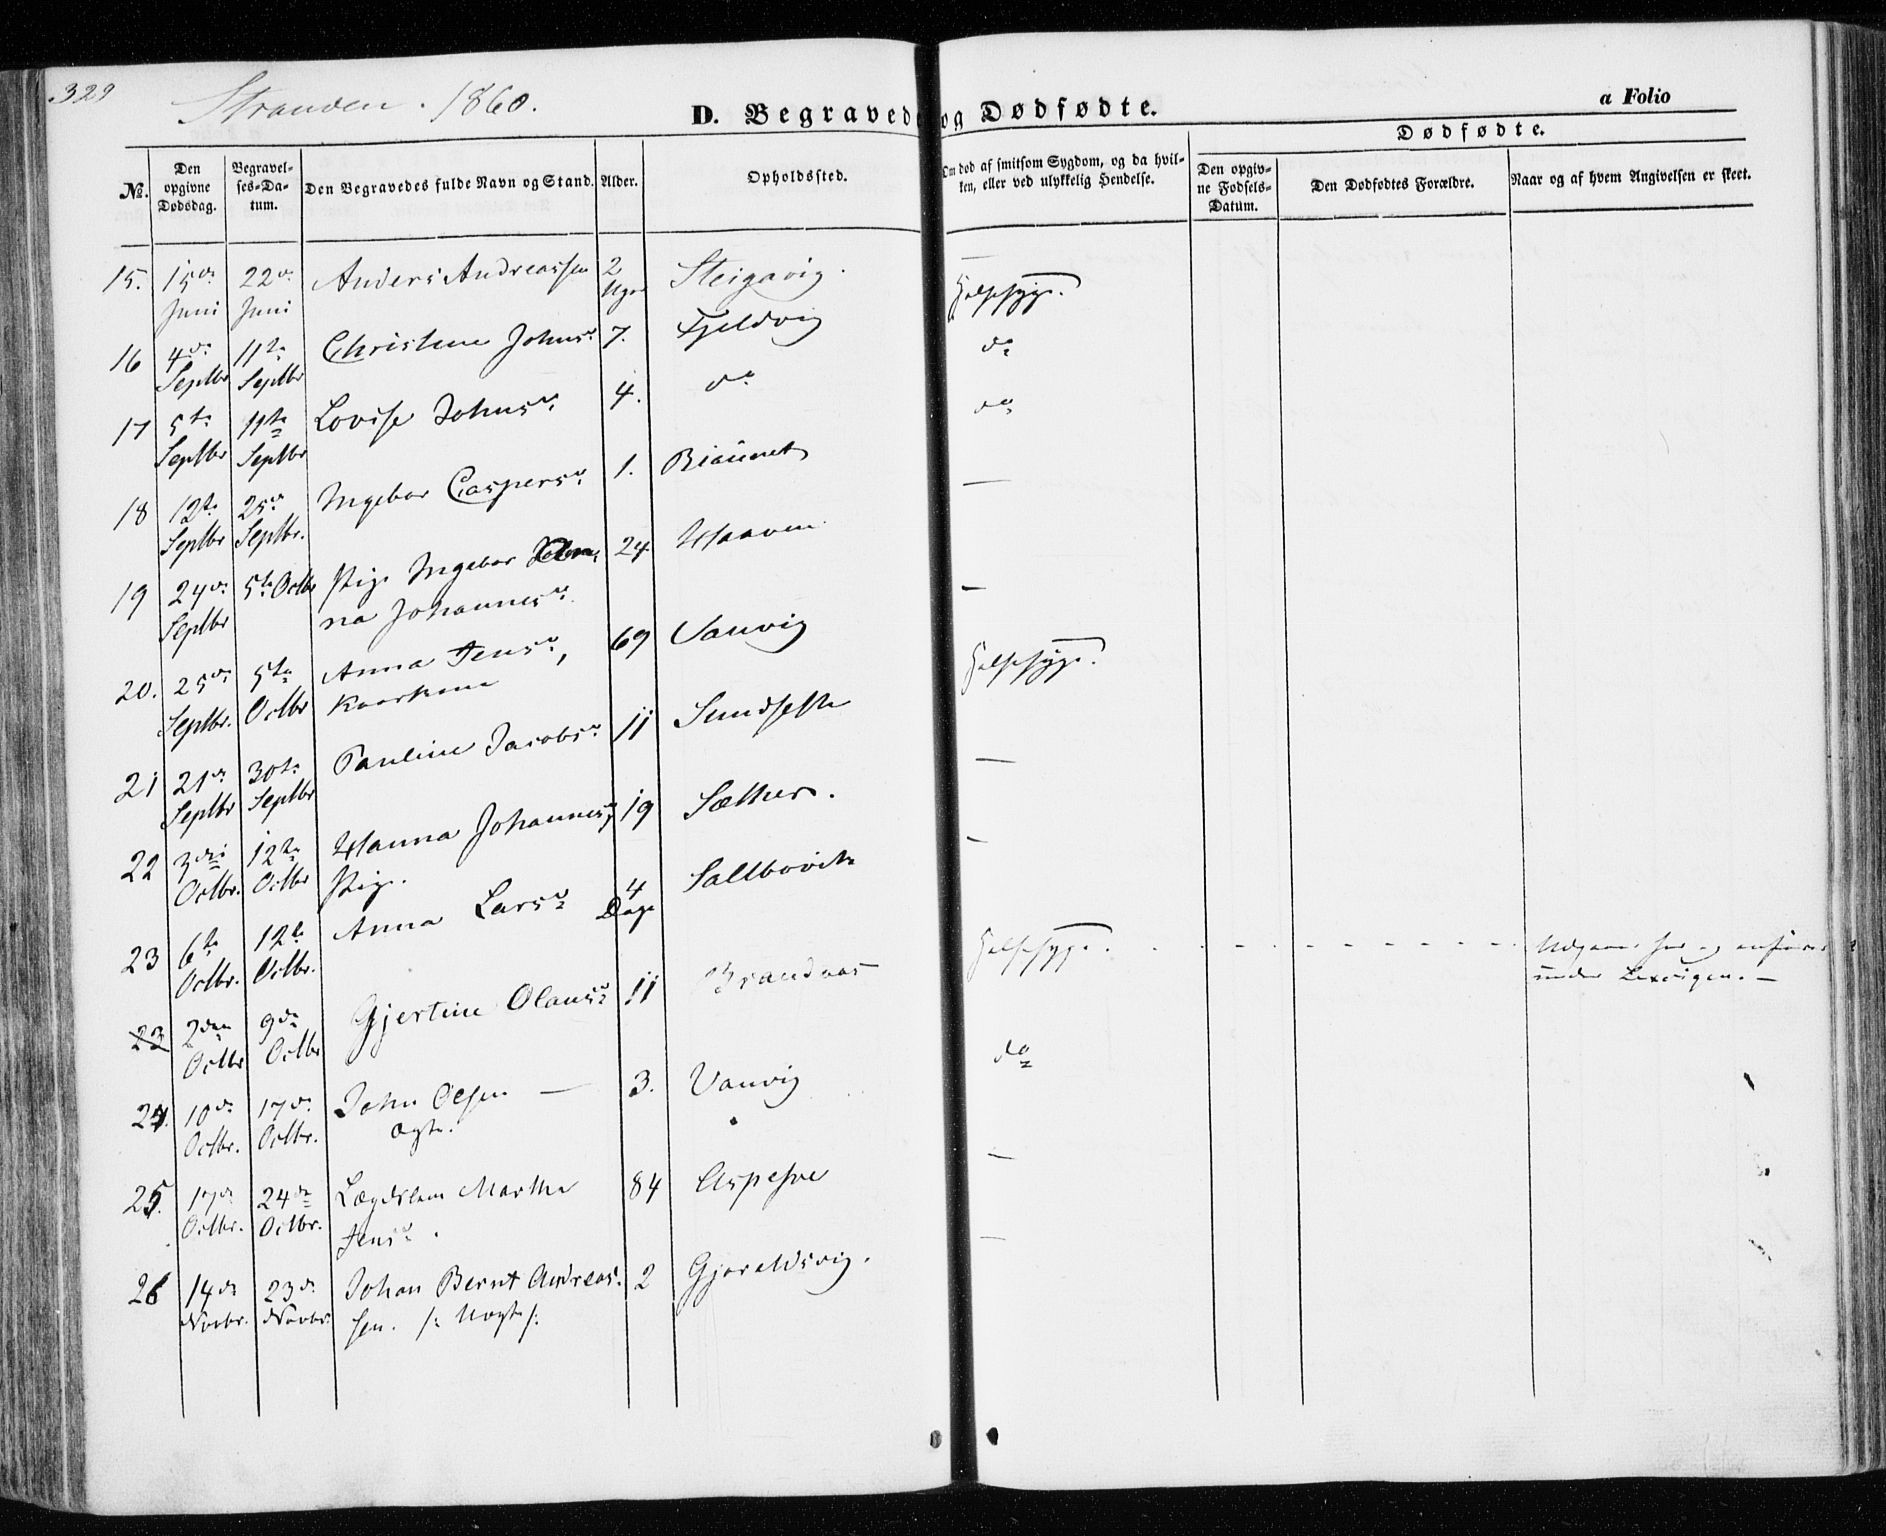 329
Stranden. 1860.
D. Begravede og Dødfødte.
a Folio
Dødfødte.
No.
Den opgivne Dødsdag.
Begravelses-Datum.
Den Begravedes fulde Navn og Stand.
Alder.
Opholdssted.
Om død af smitsom Sygdom, og da hvilken, eller ved ulykkelig Hendelse.
Den opgivne Fødsels-Datum.
Den Dødfødtes Forældre.
Naar og af hvem Angivelsen er skeet.
15. 15de 22de Anders Andreassen 2 Steigavig. —
Juni Juni Uger
16 4de 11te Christine Johnsd. 7. Fjeldvig Halssyge.
Septbr Septbr
17 5te 11te Lovise Johnsd. 4. do do
Septbr Septbr
18 12te 25de Ingebor Caspersd. 1. do
Septbr Septbr.
19 24de 5te Octbr Pige Ingebor 24 Haaven —
Septbr na Johannesd.
20. 25de 5te Anna Jensd., 69 Vanvig —
Septbr. Octbr Kaarkone
21 21de 30te Pauline Jacobsd. 11 Sundsette Halssyge.
Septbr Septbr
22 3die 12te Hanna Johannesd. 19 Sæther. —
Octbr. Octbr Pige.
23 6te 12te Anna Larsd. 4 Saltbovik —
Octbr. Octbr. Dage
23 2den 9de Gjertine Olausd. 11 Brandaas Halssyge. Udgaaer her og anføres
Octbr Octbr under Lexvigen. —
24. 10de 17de John Olsen — 3. Vanvig do
Octbr. Octbr. ægte.
25. 17de 24de Lægdslem Marthe 84 —
Octbr. Octbr. Jensd.
26 14de 23de Johan Bernt Andreas- 2 Gjæraldsvig. —
Novbr. Novbr. sen. /: Uægte :/